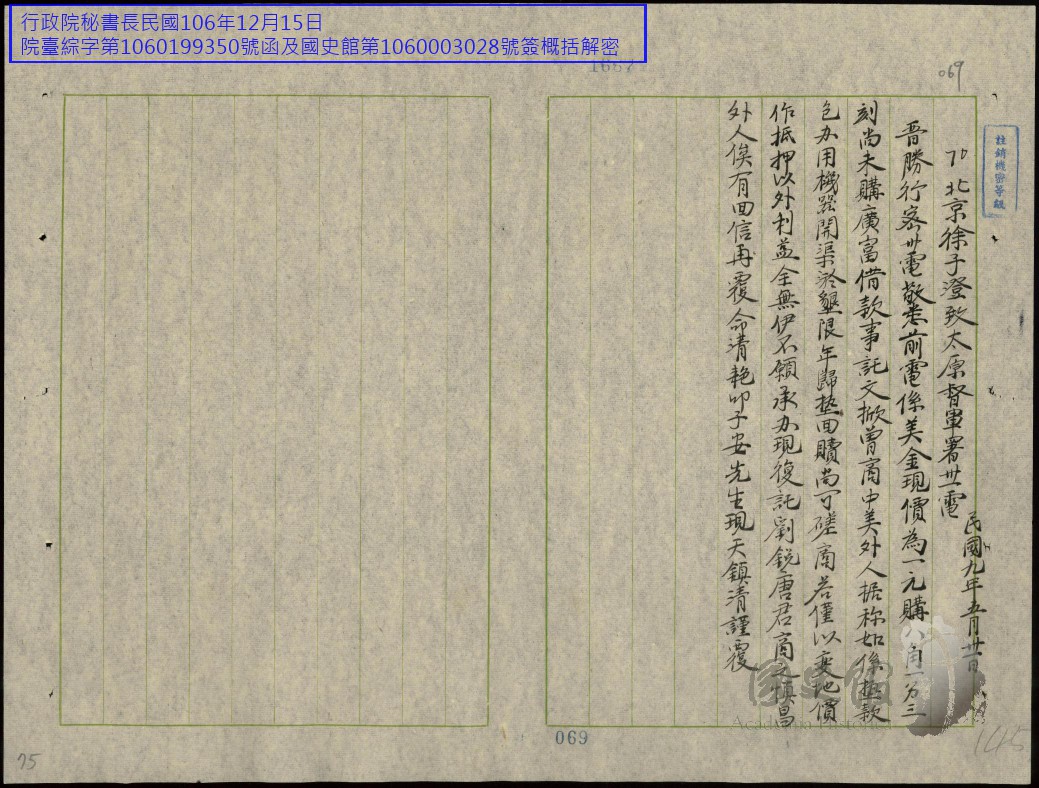 行政院秘書長民國106年12月15日
院臺綜字第1060199350號函及國史館第1060003028號簽概括解密
1687
069
註銷機密等級
北京徐子澄致太原督軍署卅一電
民國九年五月卅一日
晋勝行密卅電敬悉前電係美金現價為一元購 角一分三
刻尚未購廣富借款事託文掀曾商中美外人据称如係墊款
包办用機器開渠於墾限年歸墊回贖尚可磋商若僅以變地價
作抵押以外利益全無伊不願承办現復託劉銳唐君商之慎昌
外人俟有回信再覆命清艳叩子安先生現天鎮清謹覆
國史館
Academia Historica
069
75
145